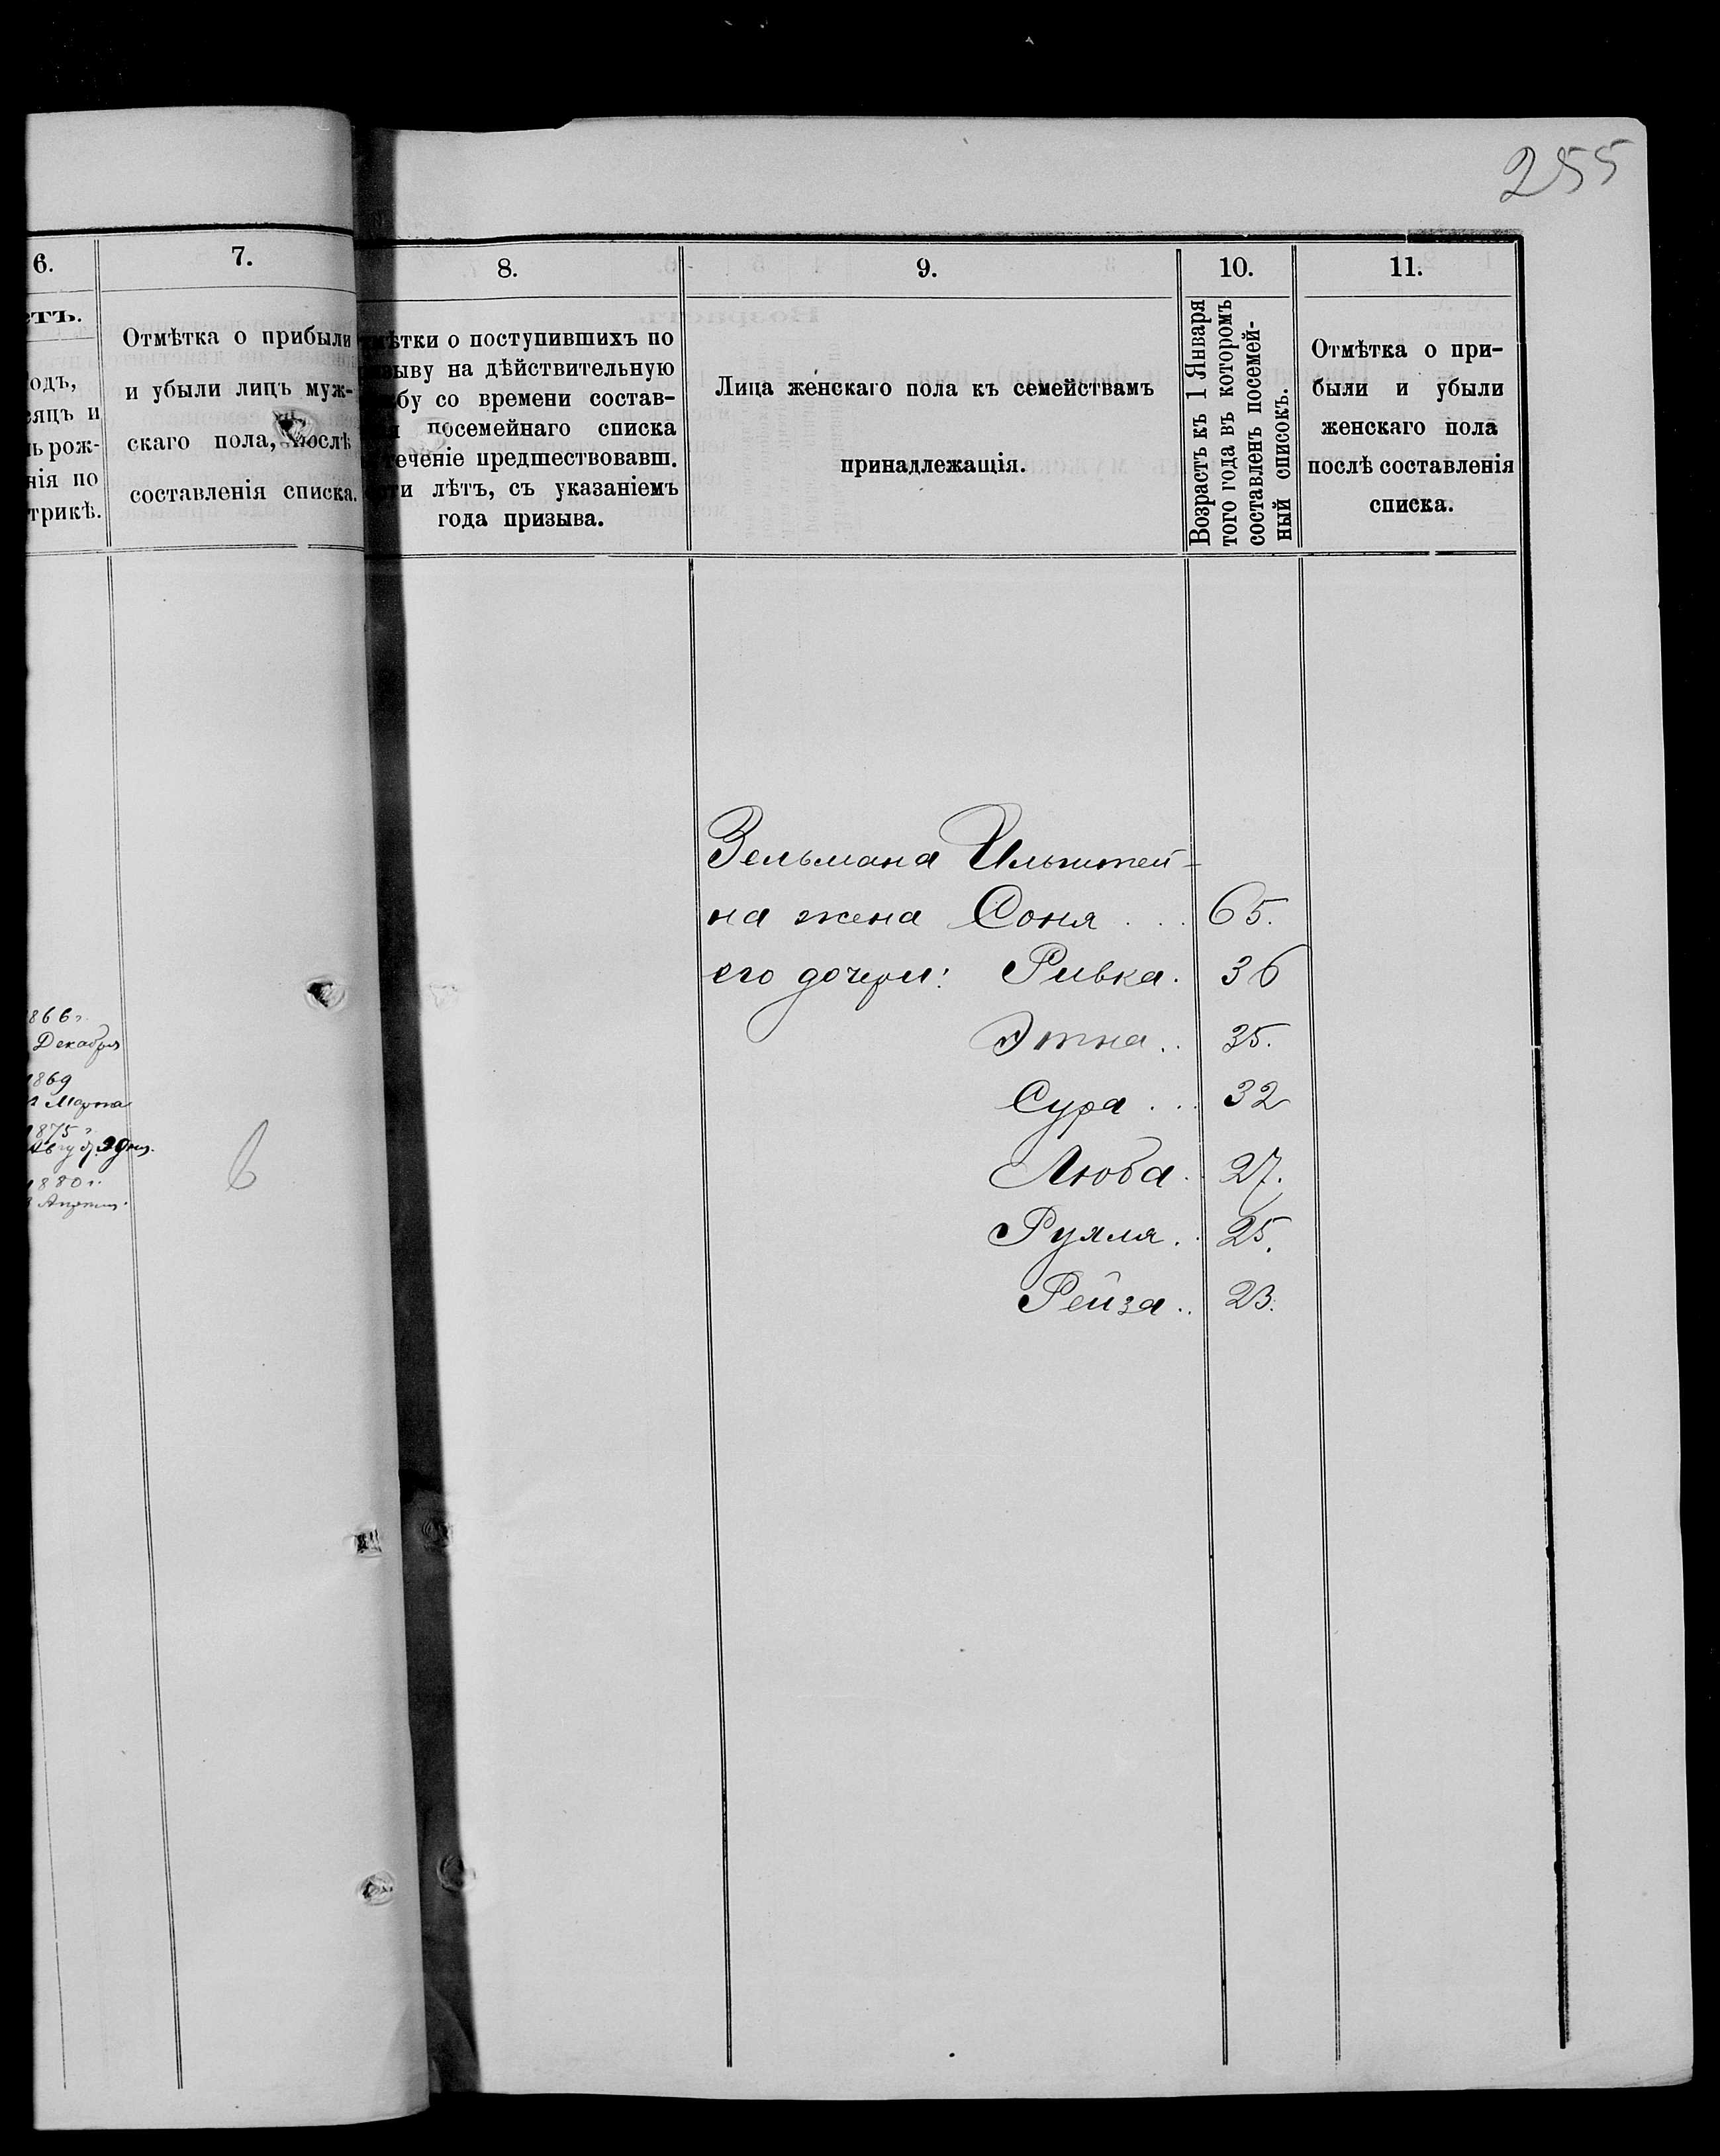 255
6.
етъ.
одъ,
сяцъ и
ь рож-
нія по
трикѣ.
7.
Отмѣтка о прибыли
и убыли лицъ муж-
скаго пола, послѣ
составленія списка.
8.
мѣтки о поступившихъ по
зыву на дѣйствительную
бу со времени состав-
я посемейнаго списка
теченіе предшествовавш.
ти лѣтъ, съ указаніемъ
года призыва.
9.
Лица женскаго пола къ семействамъ
принадлежащія.
10.
Возрастъ къ 1 Января
того года въ которомъ
составленъ посемей-
ный списокъ.
11.
Отмѣтка о при-
были и убыли
женскаго пола
послѣ составленія
списка.
866 г.
Декабря
1869
Марта
1875 г.
1880 г.
Зельмана Ильштей-
на жена Соня . . . 65.
его дочери: Ривка. 36
Этна .. 35.
Сура ... 32
Люба . 27.
Рухля . . 25.
Рейза .. 23.